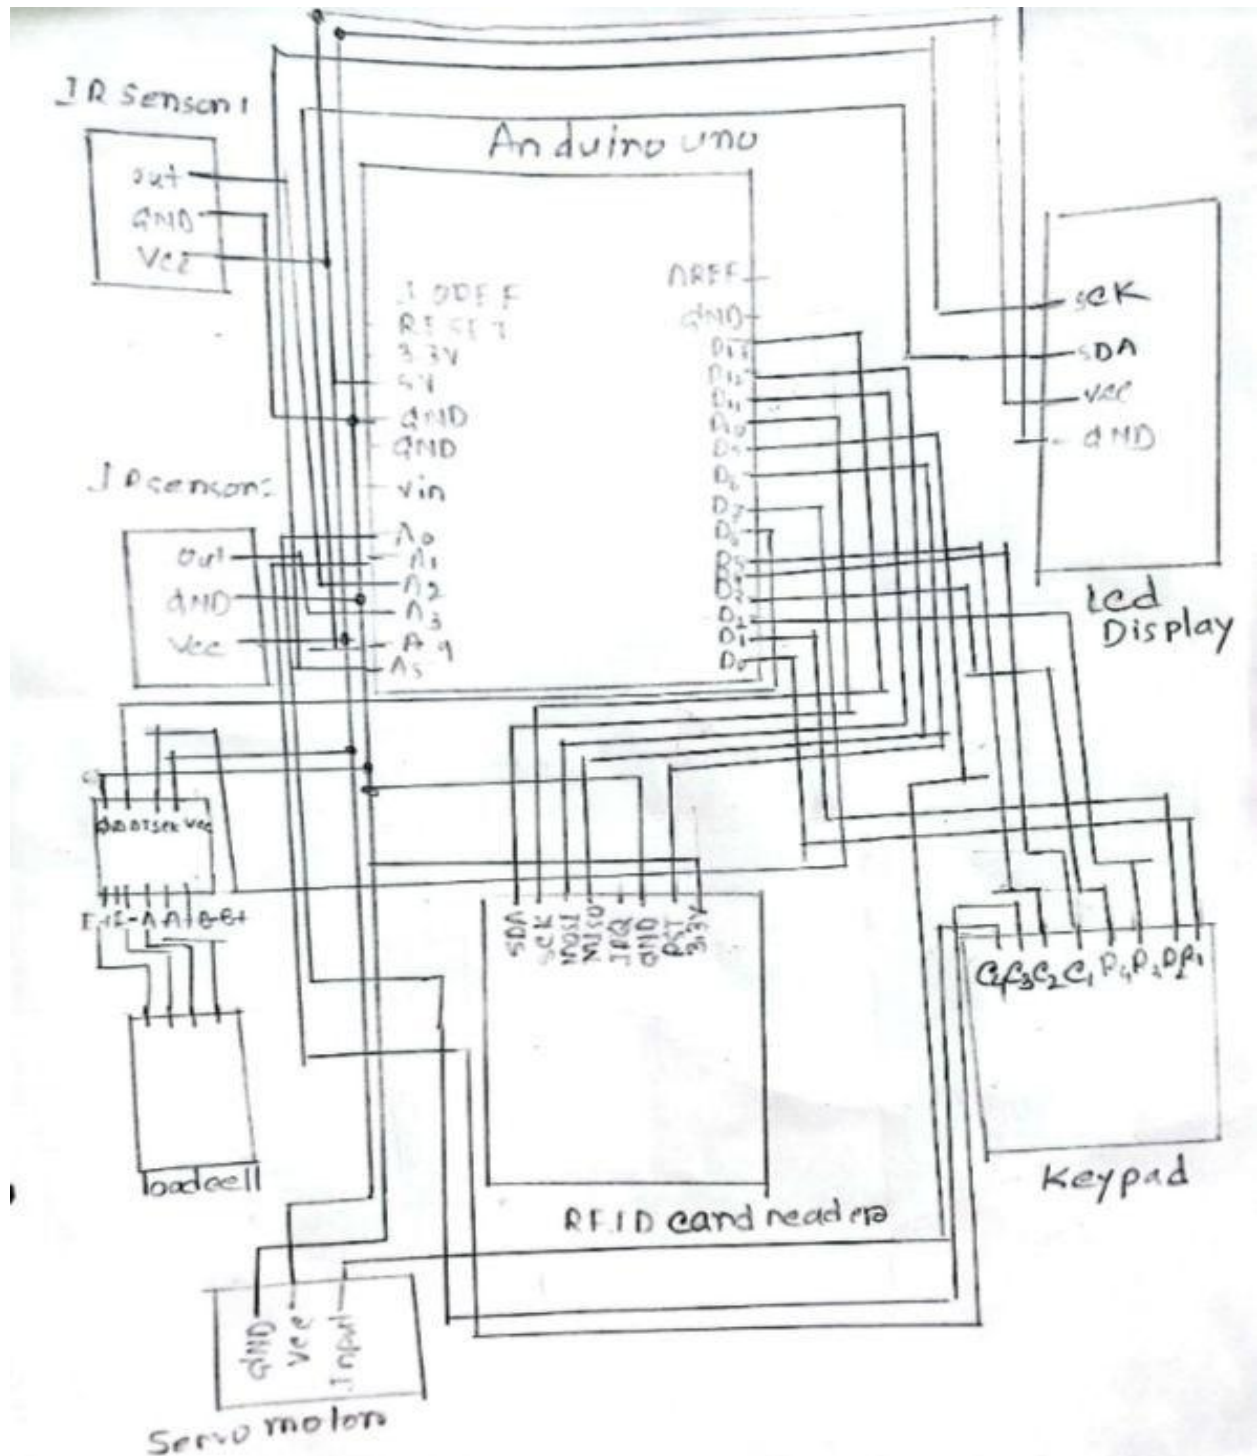 IR Sensor 1
Out
GND
Vcc
Arduino uno
IOREF
RESET
3.3V
5V
GND
GND
Vin
A0
A1
A2
A3
A4
A5
AREF
GND
D13
D12
D11
D10
D9
D8
D7
D6
D5
D4
D3
D2
D1
D0
SCK
SDA
VCC
GND
Lcd
Display
IR sensor 2
Out
GND
Vcc
GND DT SCK Vcc
E+ E- A- A+ B- B+
loadcell
SDA
SCK
MOSI
MISO
IRQ
GND
RST
3.3V
RFID card reader
C4 C3 C2 C1 R4 R3 R2 R1
Keypad
GND
Vcc
Input
Servo motor